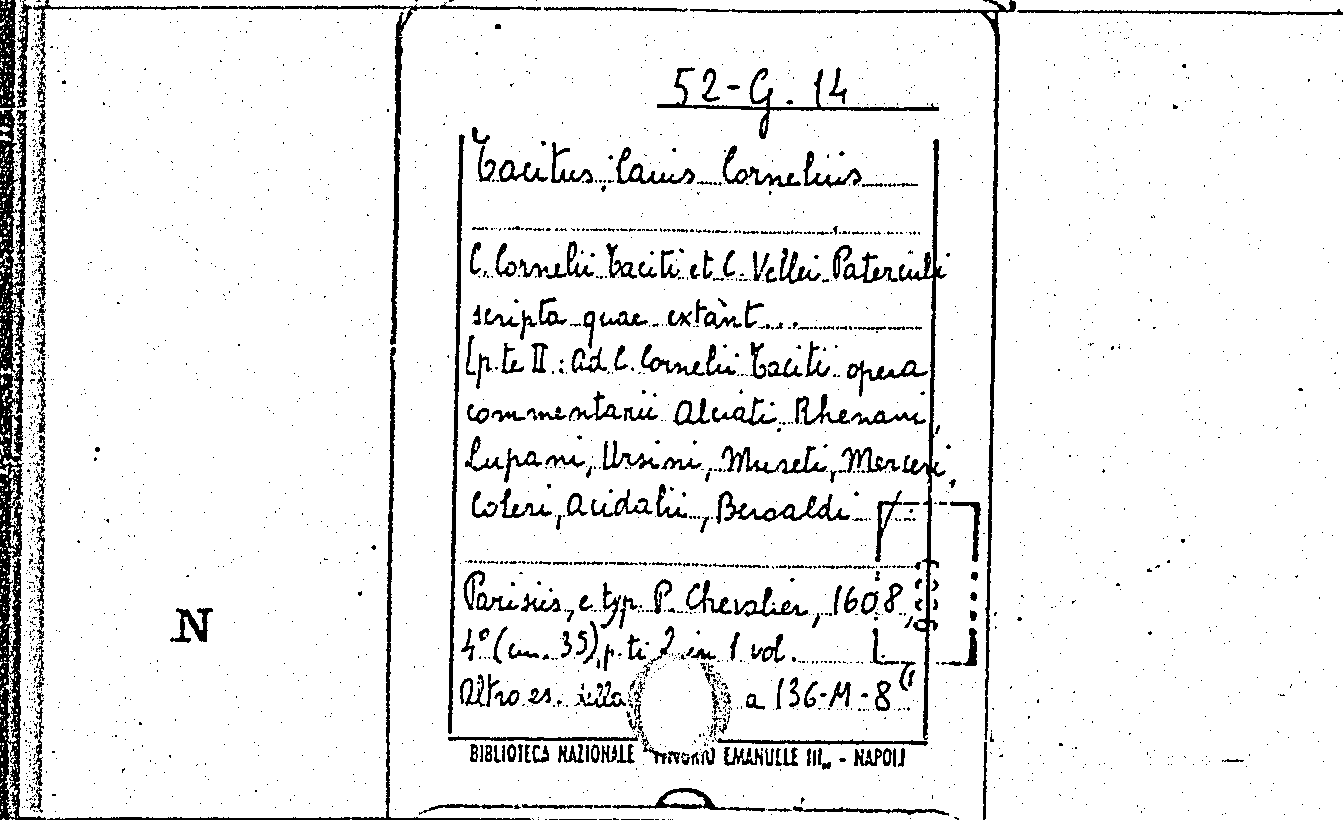 52-G. 14
Tacitus, Caius Cornelius
C. Cornelii Taciti et C. Vellei Paterculi
scripta quae extànt...
[p.te II : ad C. Cornelii Taciti opera
commentarii Alciati, Rhenani,
Lupani, Ursini, Mureti, Merceri,
Coleri, Acidalii, Beroaldi
Parisiis, e typ. P. Chevalier, 1608,
4° (cm. 35), p.ti 2 in 1 vol.
Altro es. della a 136-M-8
N
BIBLIOTECA NAZIONALE VITTORIO EMANUELE III„ - NAPOLI